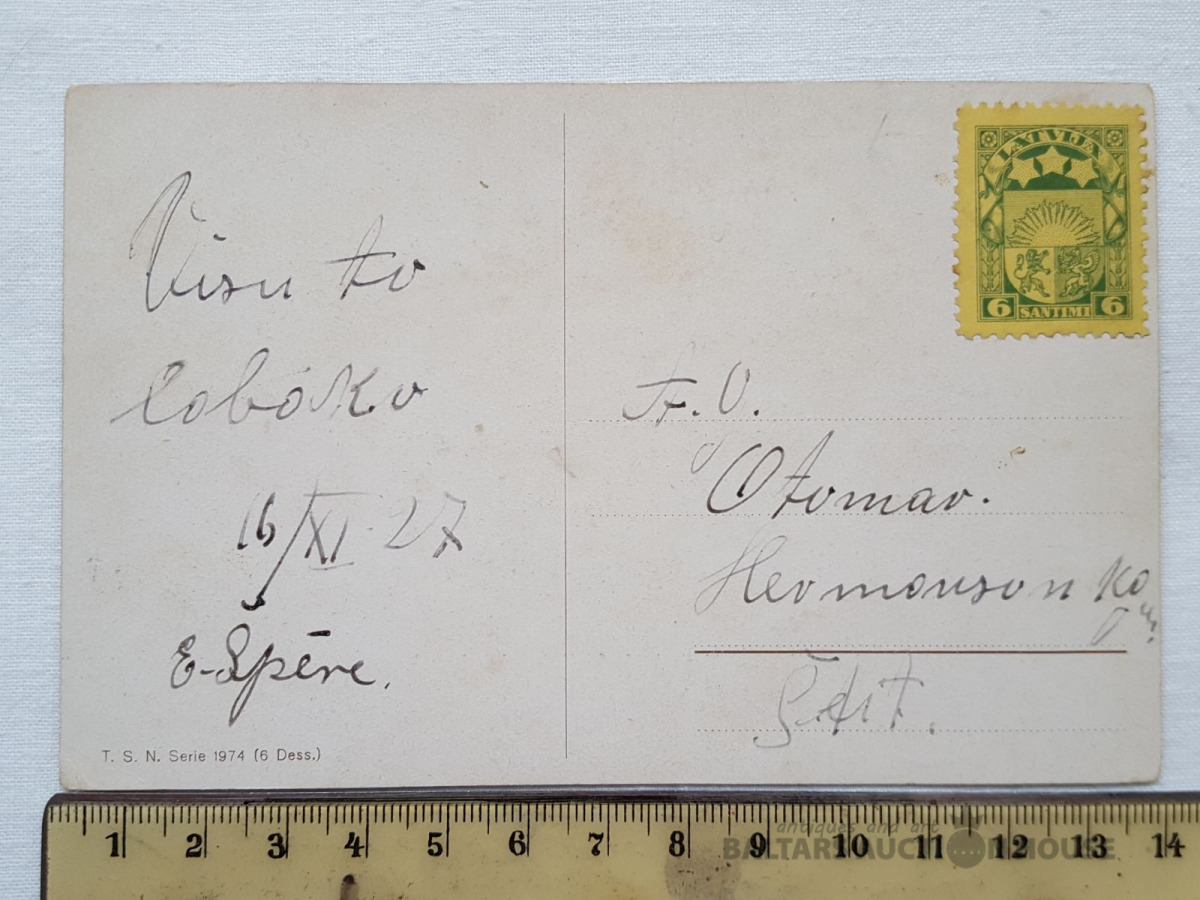 Visu to
labāko
16/XI 27
E-Spēre.
T. S. N. Serie 1974 (6 Dess.)
LATVIJA
6 SANTIMI 6
A. G.
Otomar.
Hermanson
Šeit.
1 2 3 4 5 6 7 8 9 10 11 12 13 14
antiques and art
BALTARTAUCTIONHOUSE